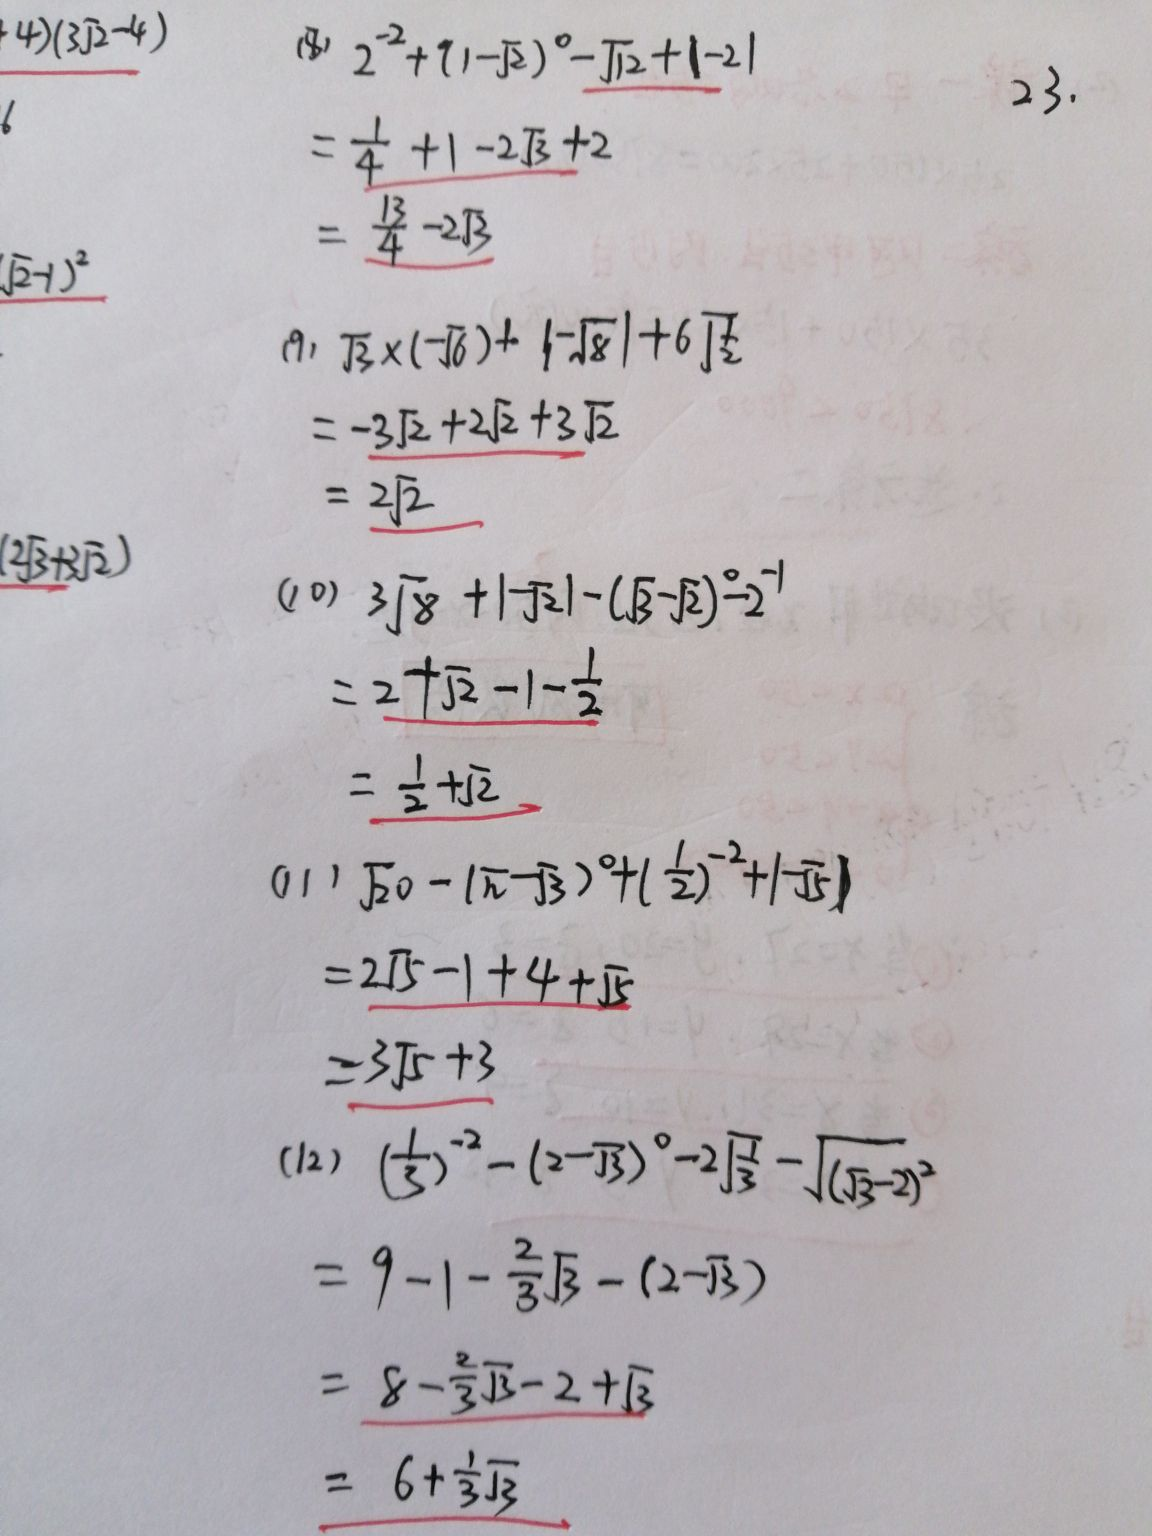 +4)(3√2-4)
6
(√2-1)²
(2√3+3√2)
(8) 2⁻²+(1-√2)⁰-√12+|-2|
=1/4+1-2√3+2
=13/4-2√3
(9) √3×(-√6)+|-√8|+6√(1/2)
=-3√2+2√2+3√2
=2√2
(10) 3√8+|-√2|-(√3-√2)⁰-2⁻¹
=2+√2-1-1/2
=1/2+√2
(11) √20-(π-√3)⁰+(1/2)⁻²+|-√5|
=2√5-1+4+√5
=3√5+3
(12) (1/3)⁻²-(2-√3)⁰-2√(1/3)-√(√3-2)²
=9-1-2/3√3-(2-√3)
=8-2/3√3-2+√3
=6+1/3√3
23.